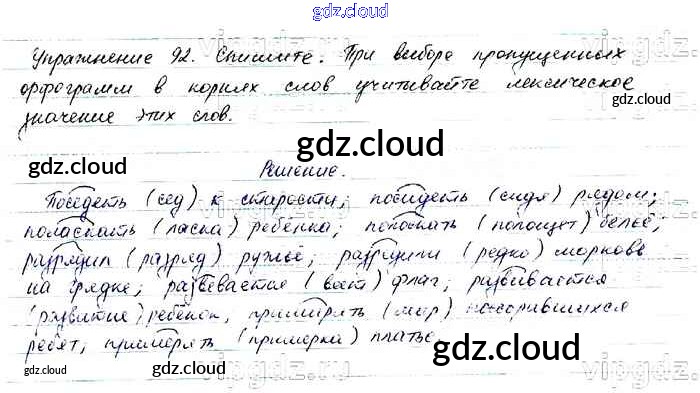 gdz.cloud
Упражнение 92. Спишите. При выборе пропущенных
орфограмм в корнях слов учитывайте лексическое
gdz.cloud
значение этих слов.
gdz.cloud
gdz.cloud
gdz.cloud
Решение.
Поседеть (сед) к старости; посидеть (сидя) рядом;
поласкать (ласка) ребёнка; полоскать (полощет) бельё;
разрядил (разряд) ружьё; разрядили (редко) морковь
на грядке; развевается (веет) флаг; развивается
(развитие) ребёнок, примирять (мир) поссорившихся
ребят, примерять (примерка) платье.
gdz.cloud
gdz.cloud
gdz.cloud